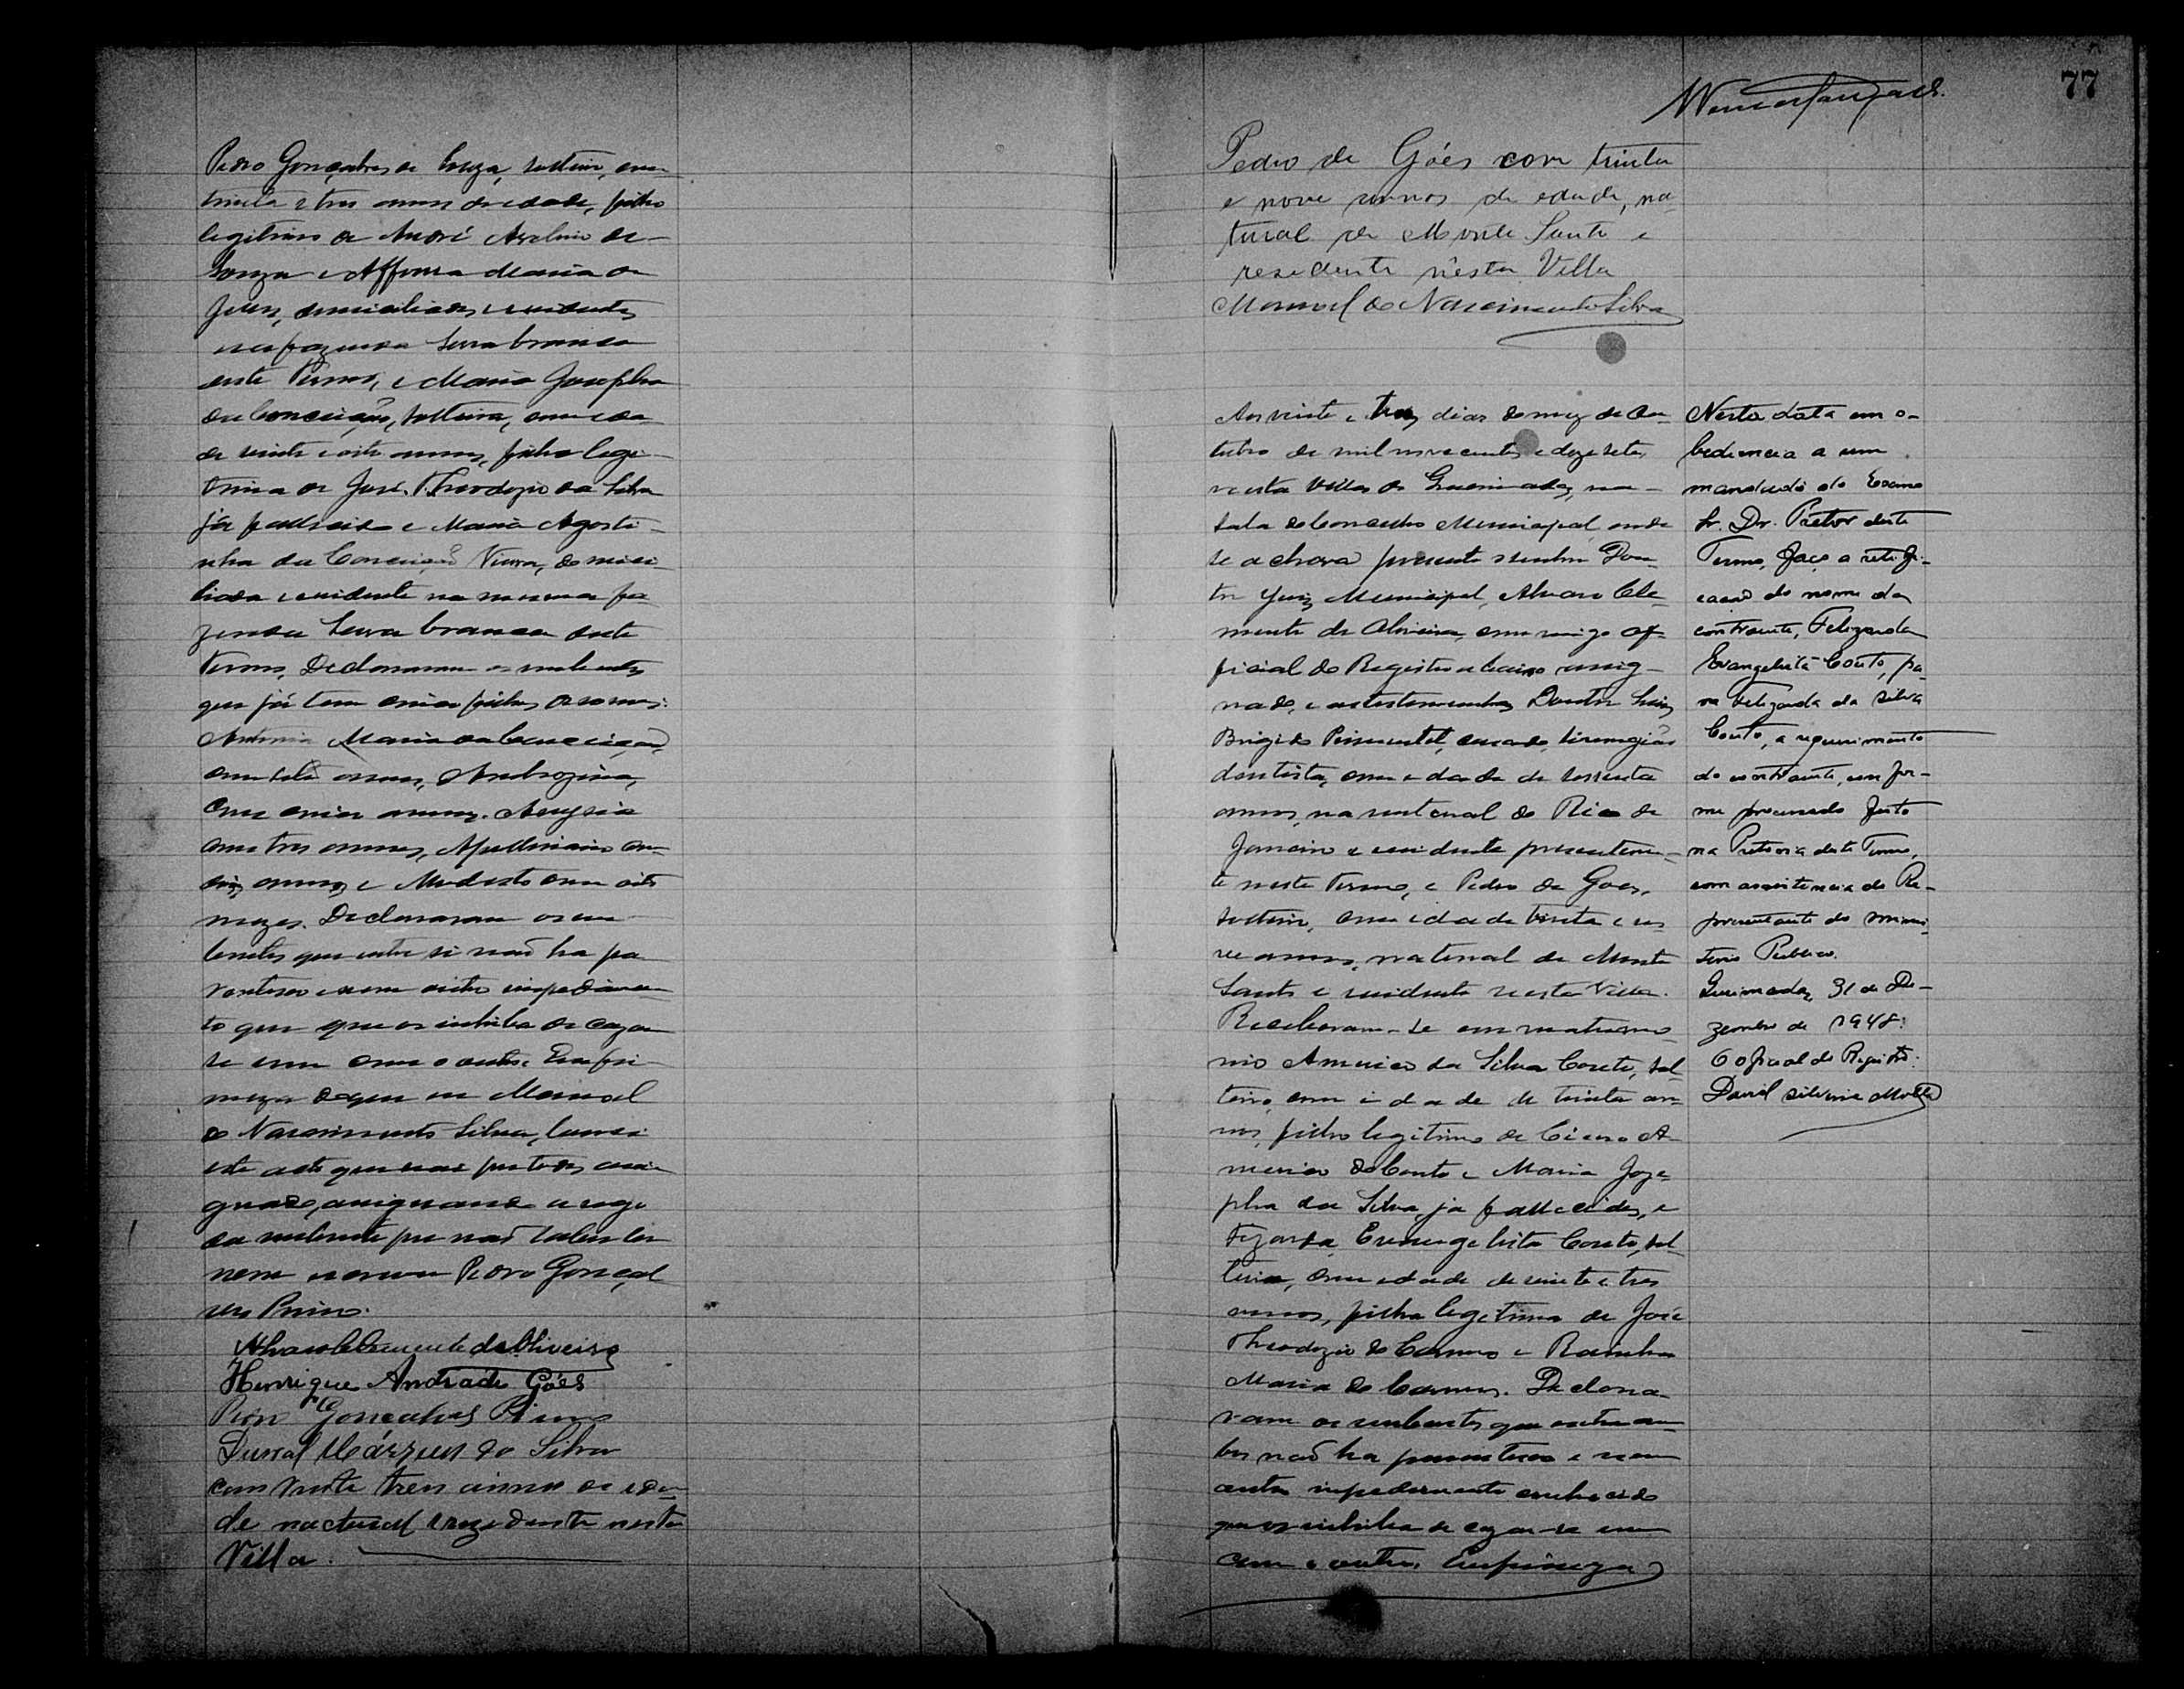 Pedro Gonçalves de Souza, solteiro, com
trinta e tres annos de edade, filho
legitimo de André Avelino de
Souza e Affonsa Maria de
Jesus, domiciliados e residentes
na fazenda Serra branca
deste Termo, e Maria Josepha
da Conceição, solteira, com eda
de vinte e oito annos, filha legi-
tima de José Theodozio da Silva
já fallecido e Maria Agosti-
nha da Conceição Vieira, domici-
liada e residente na mesma fa-
zenda Serra branca deste
Termo. Declararam os nubentes
que já tem cinco filhos de nomes:
Antonia Maria da Conceição,
com sete annos, Ambrozina,
com cinco annos,
com tres annos, Apollinario com
dois annos e Modesto com oito
mezes. Declararam os nu-
bentes que entre si naõ ha pa-
rentesco e nem outro impedimen-
to que que os inhiba de cazar
se um com o outro. Em fir-
meza do que eu Manoel
do Nascimento Silva, lavrei
este acto que vae por todos assi-
gnado, assignando a rogo
da nubente por naõ saber ler
nem escrever Pedro Gonçal
ves Primo.
Alvaro Clemente de Oliveira
Henrique Andrade Góes
Pedro Gonçalves Primo
Durval Marques da Silva
com vinte tres annos de eda-
de nactural e rezidente nesta
Villa.
77
Pedro de Góes com trinta
e nove annos de edade, na-
tural de Monte Santo e
residente n'esta Villa
Manoel do Nascimento Silva
Aos vinte e tres dias do mez de Ou-
tubro de mil novecentos e dezesete,
nesta Villa de Queimadas, na
sala do Conselho Municipal, onde
se achava presente o senhor Dou-
tor Juiz Municipal, Alvaro Cle-
mente de Oliveira, commigo of-
ficial do Registro abaixo assig-
nado, e as testemunhas Doutor Luiz
Brigido Pimentel, casado, cirurgião
dentista, com edade de sessenta
annos, natural do Rio de
Janeiro e residente presentemen-
te neste Termo, e Pedro de Goes,
solteiro, com edade trinta e no
ve annos, natural de Monte
Santo e residente nesta Villa.
Receberam-se em matrimo
nio Americo da Silva Couto, sol-
teiro, com idade de trinta an-
nos, filho legitimo de Cicero A-
merico do Couto e Maria Joze-
pha da Silva, já fallecidos, e
Evangelista Couto, sol-
teira, com edade de vinte e tres
annos, filha legitima de José
Theodozio do Carmo e
Maria do Carmo. Declara-
ram os nubentes que entre am-
bos naõ ha parentesco e nem
outro impedimento conhecido
que os inhiba de cazar-se um
com o outro. Em firmeza
Nesta data em o-
bediencia a um
mandado do Exmo
Sr. Dr. Pretor deste
Termo, faço a retifi-
cação do nome da
contraente, Felizarda
Evangelista Couto, pa-
ra Felizarda da Silva
Couto, a requerimento
do contraente, con for-
me processado feito
na Pretoria deste Termo,
com assistencia do Re-
presentante do minis-
terio Publico.
Queimadas, 31 de De-
zembro de 1948.
O oficial do Registro.
David Silverio Motta